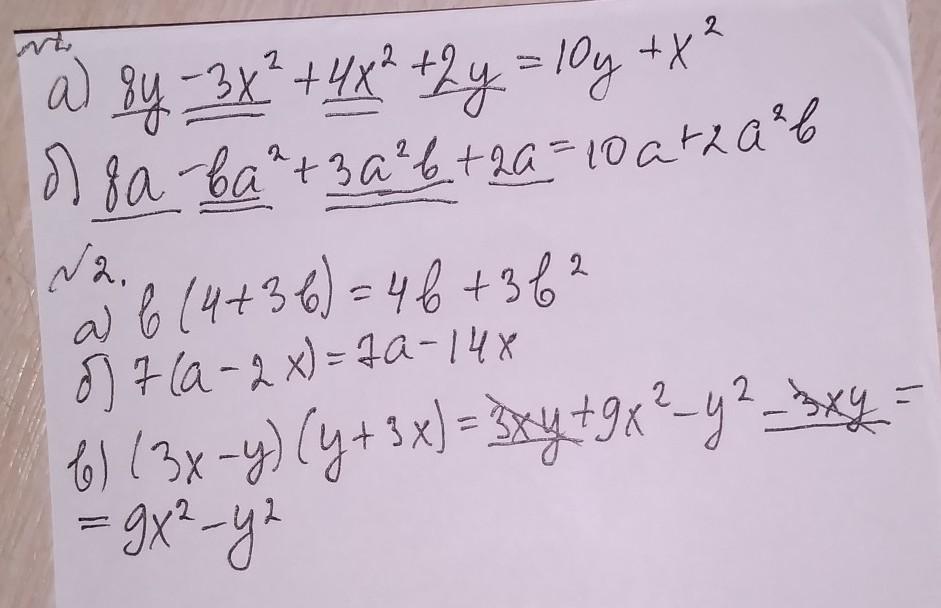 №1.
а) 8y - 3x² + 4x² + 2y = 10y + x²
б) 8a - ba² + 3a²b + 2a = 10a + 2a²b
№2.
а) b (4 + 3b) = 4b + 3b²
б) 7(a - 2x) = 7a - 14x
в) (3x - y) (y + 3x) = 3xy + 9x² - y² - 3xy =
= 9x² - y²